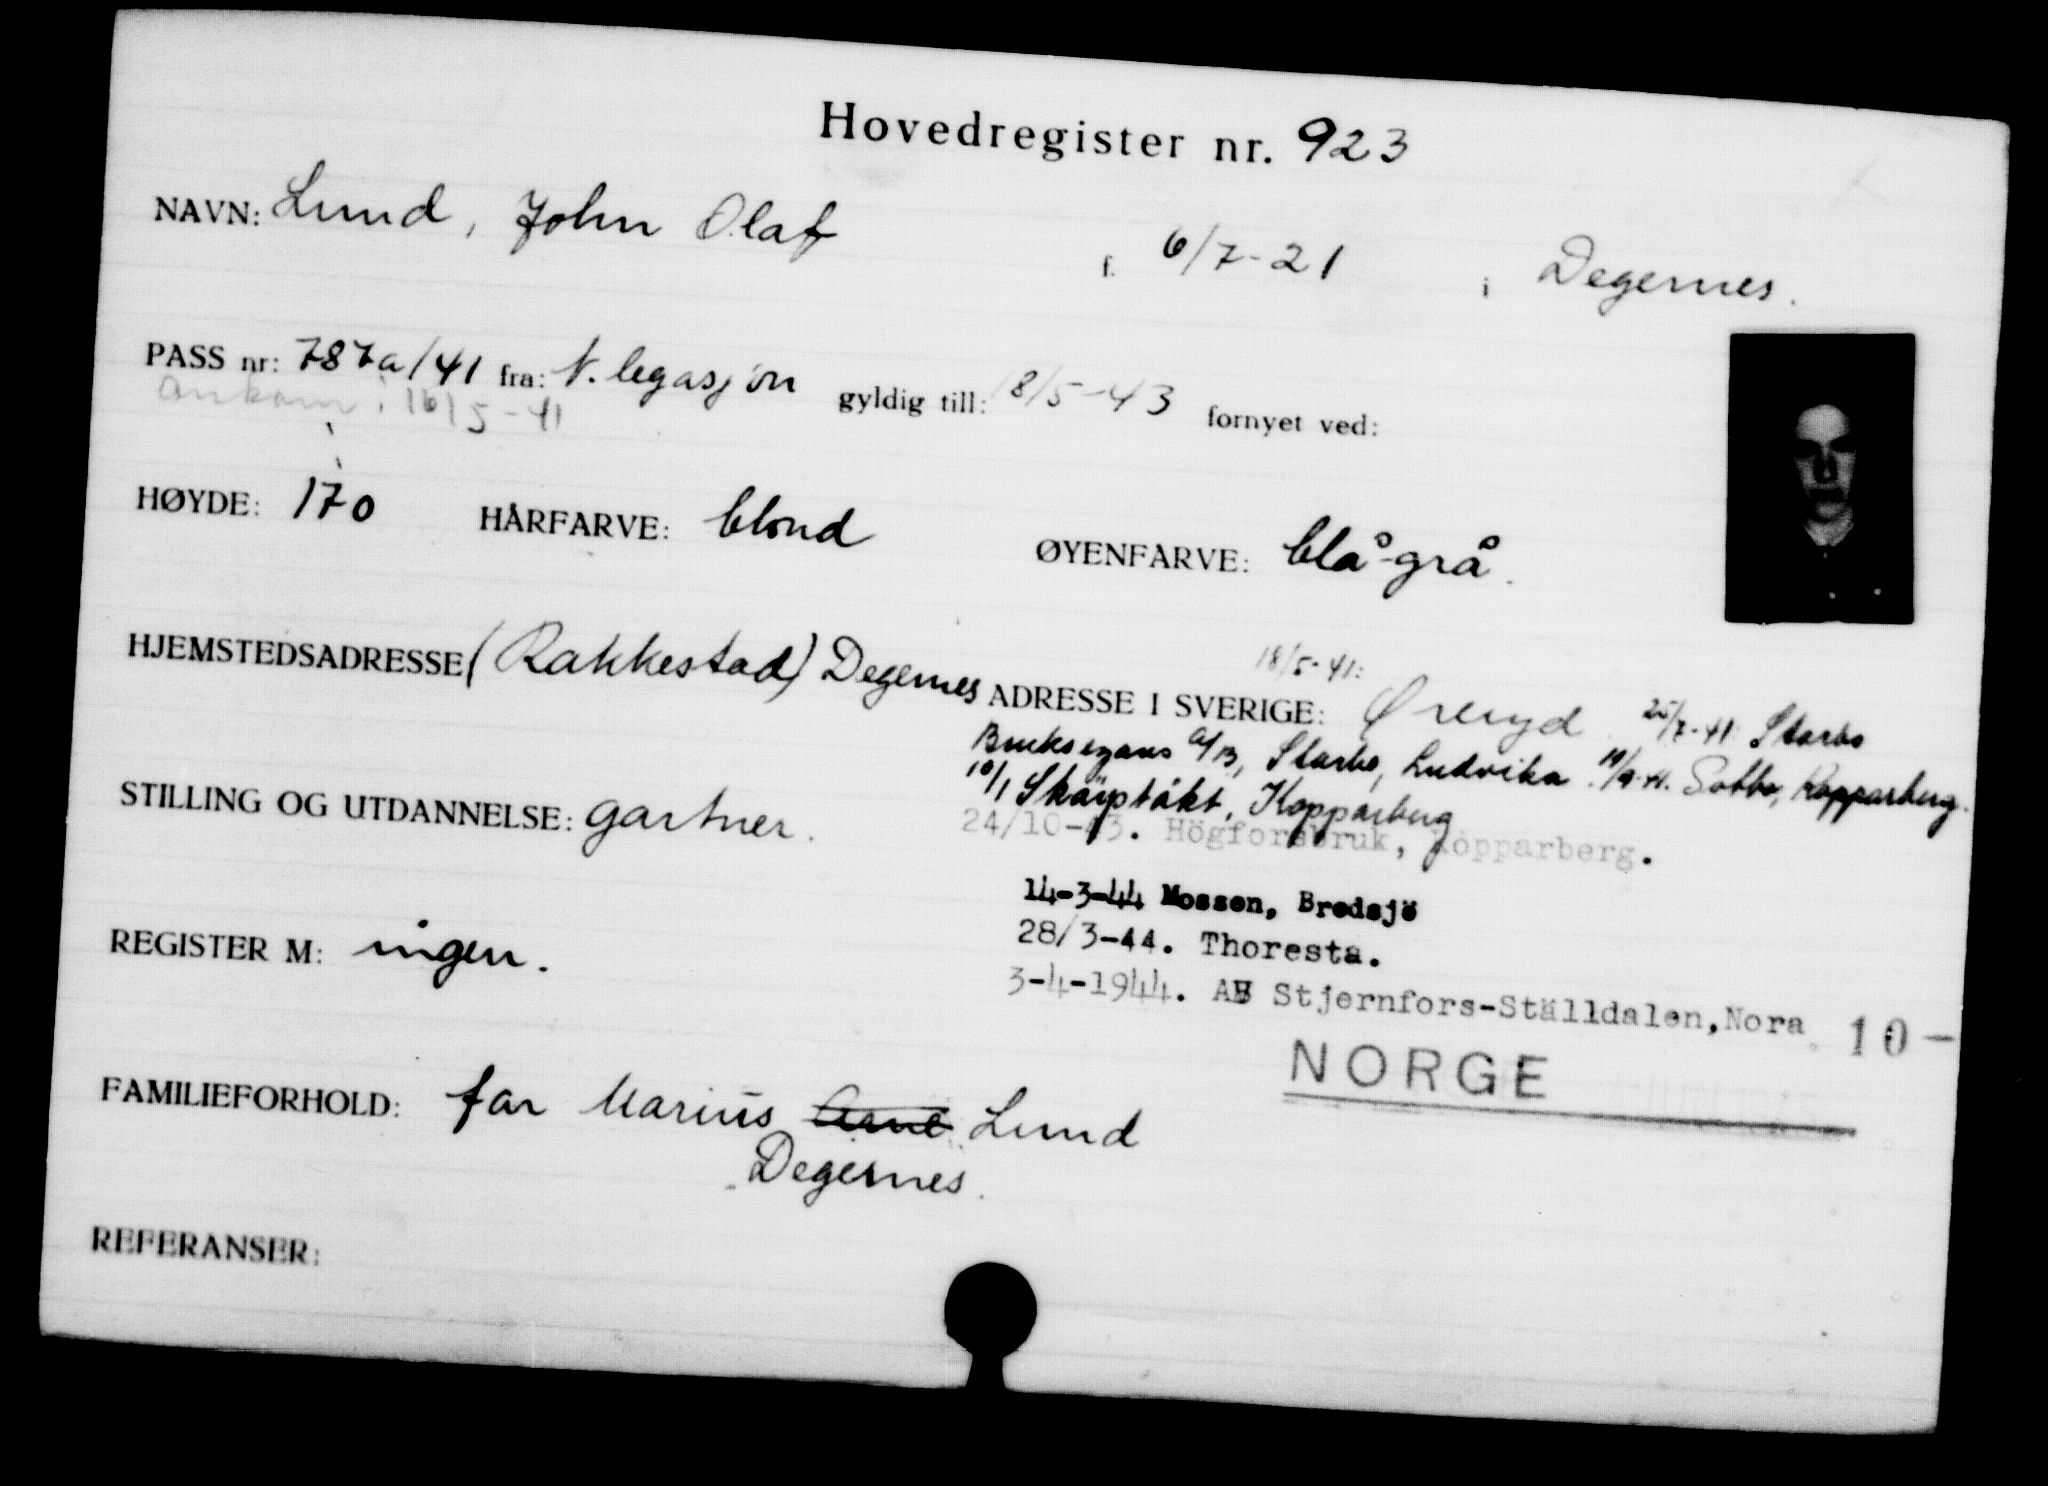 Hovedregister nr. 923
NAVN: Lund, John Olaf f. 6/7-21 i Degernes.
PASS nr: 787a/41 fra: N. legasjon gyldig till: 18/5-43 fornyet ved:
Ankom: 16/5-41
HØYDE: 170 HÅRFARVE: blond ØYENFARVE: blå-grå.
HJEMSTEDSADRESSE (Rakkestad) Degernes ADRESSE I SVERIGE: 18/5-41: Øreryd 25/7-41 Starbo
Bruksegars A/B, Starbo, Ludvika. 19/9-41. Kopparberg.
10/1 Skärptäkt, Kopparberg
24/10-43. Högforsbruk, Kopparberg.
STILLING OG UTDANNELSE: gartner.
14-3-44 Mossen, Bredsjö
28/3-44. Thoresta.
3-4-1944. AB Stjernfors-Ställdalen, Nora 10-
REGISTER M: ingen.
NORGE
FAMILIEFORHOLD: far Marius Arne Lund
Degernes.
REFERANSER: